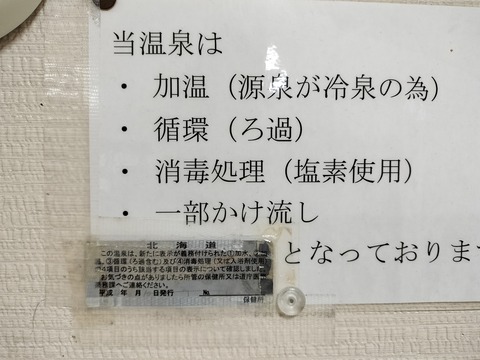 当温泉は
・ 加温（源泉が冷泉の為）
・ 循環（ろ過）
・ 消毒処理（塩素使用）
・ 一部かけ流し
となっております
北海道
この温泉は、新たに表示が義務付けられた①加水、②
温、③循環（ろ過含む）及び④消毒処理（又は入浴剤使用
4項目のうち該当する項目の表示について確認しました
お気づきの点がありましたら所管の保健所又は道庁
務課へご連絡ください。
平成 年 月 日発行 № 
保健所